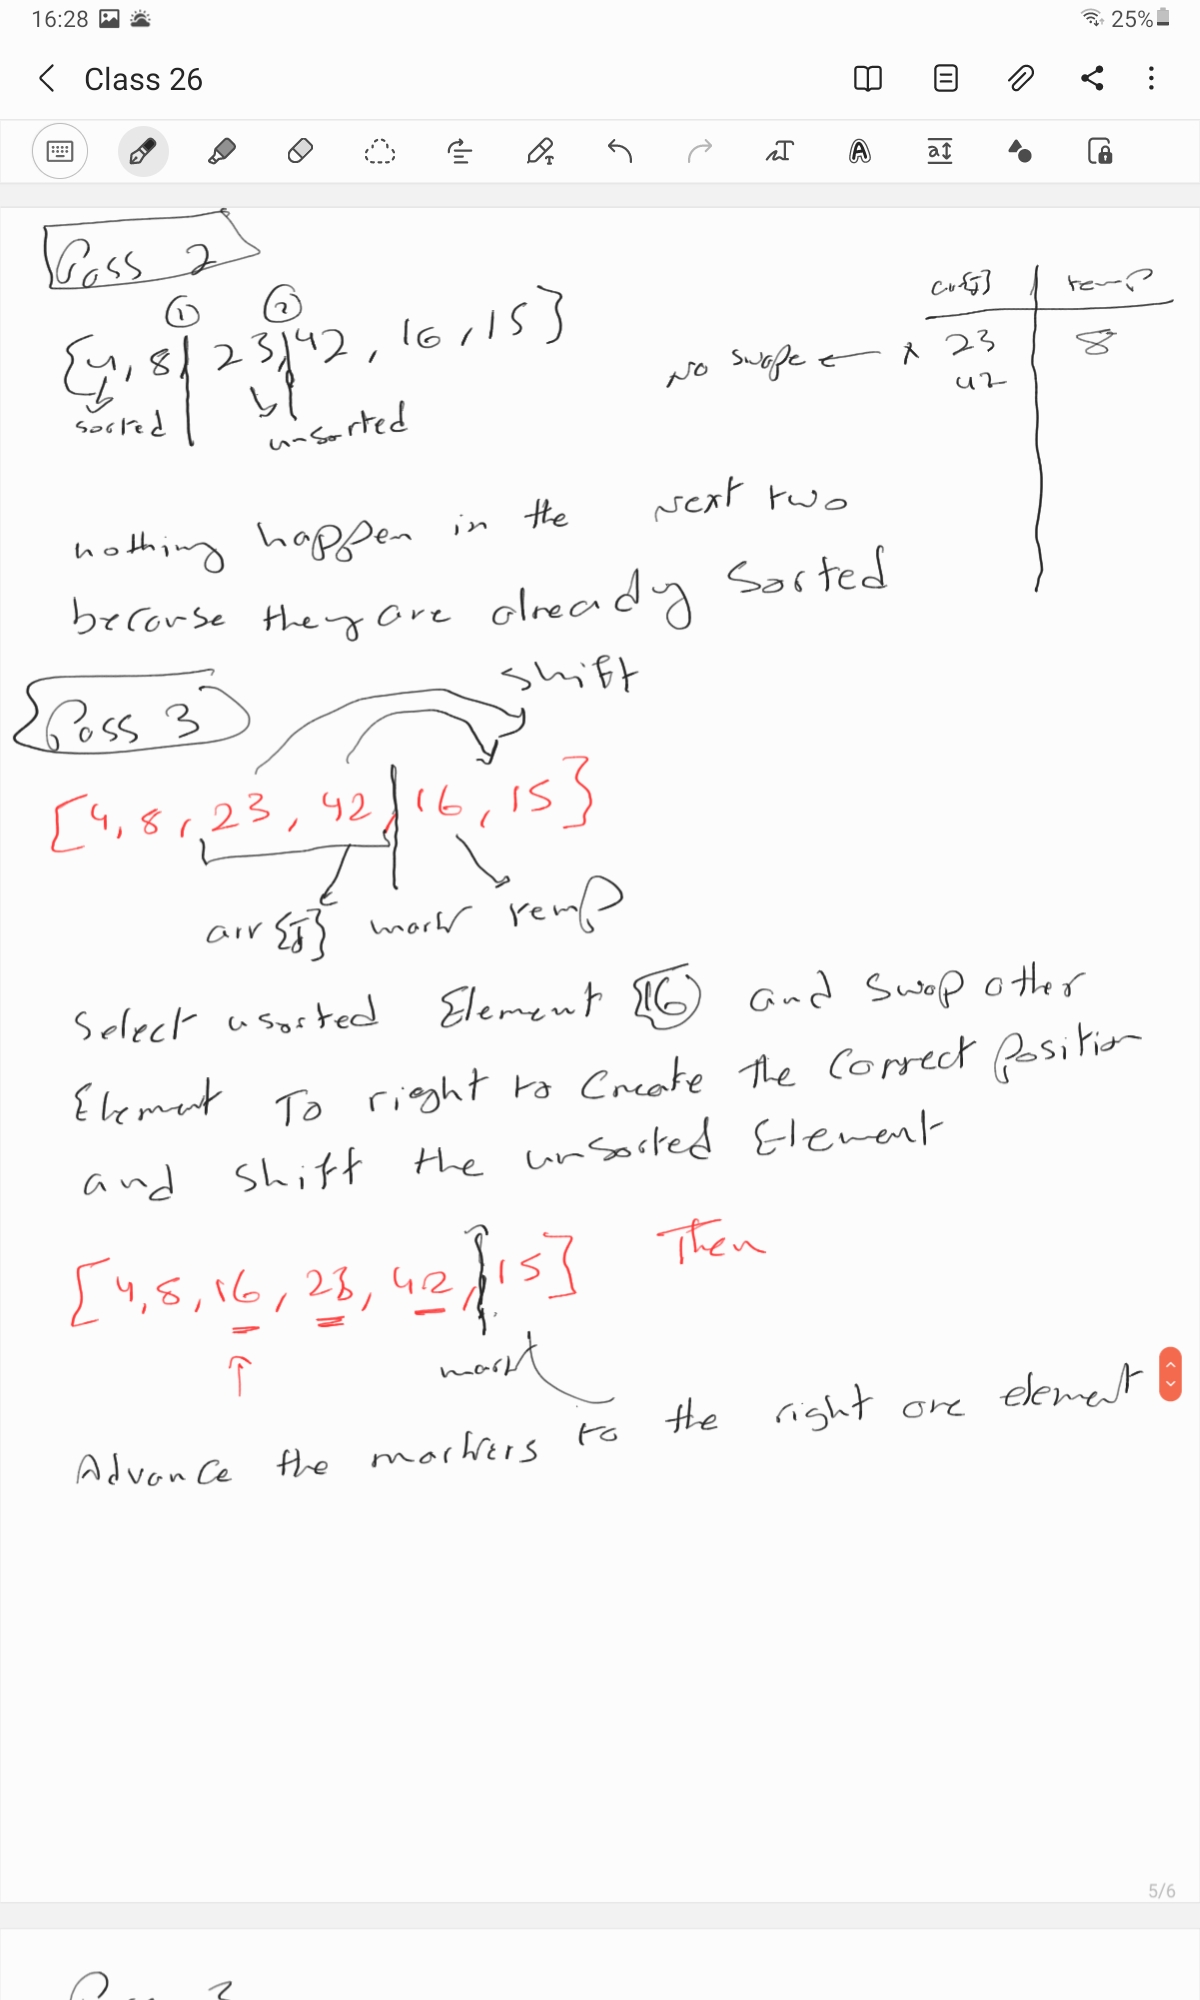 16:28
25%
Class 26
Pass 2
① ②
{4, 8| 23,|42, 16, 15}
sorted
unsorted
arr[j] temp
No swope ← x 23 8
42
nothing happen in the next two
becouse they are already sorted
Pass 3
shift
[4, 8, 23, 42,|16, 15}
arr{j} mark temp
Select usorted Element {16} and swap other
Element To right to create the correct position
and shift the unsorted Element
[4, 8, 16, 23, 42,|15] Then
mark
Advance the markers to the right one element
5/6